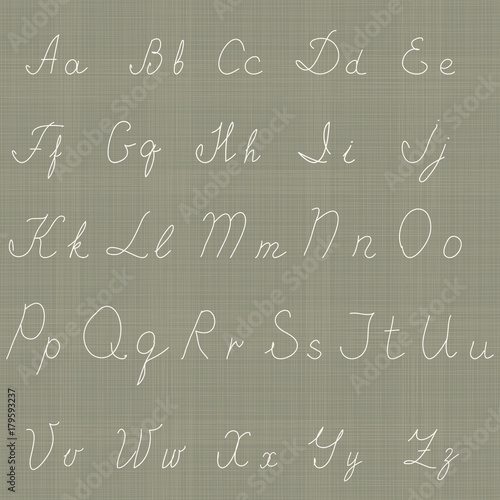 Aa Bb Cc Dd Ee
Ff Gg Hh Ii Jj
Kk Ll Mm Nn Oo
Pp Qq Rr Ss Tt Uu
Vv Ww Xx Yy Zz
Adobe Stock | #179593237